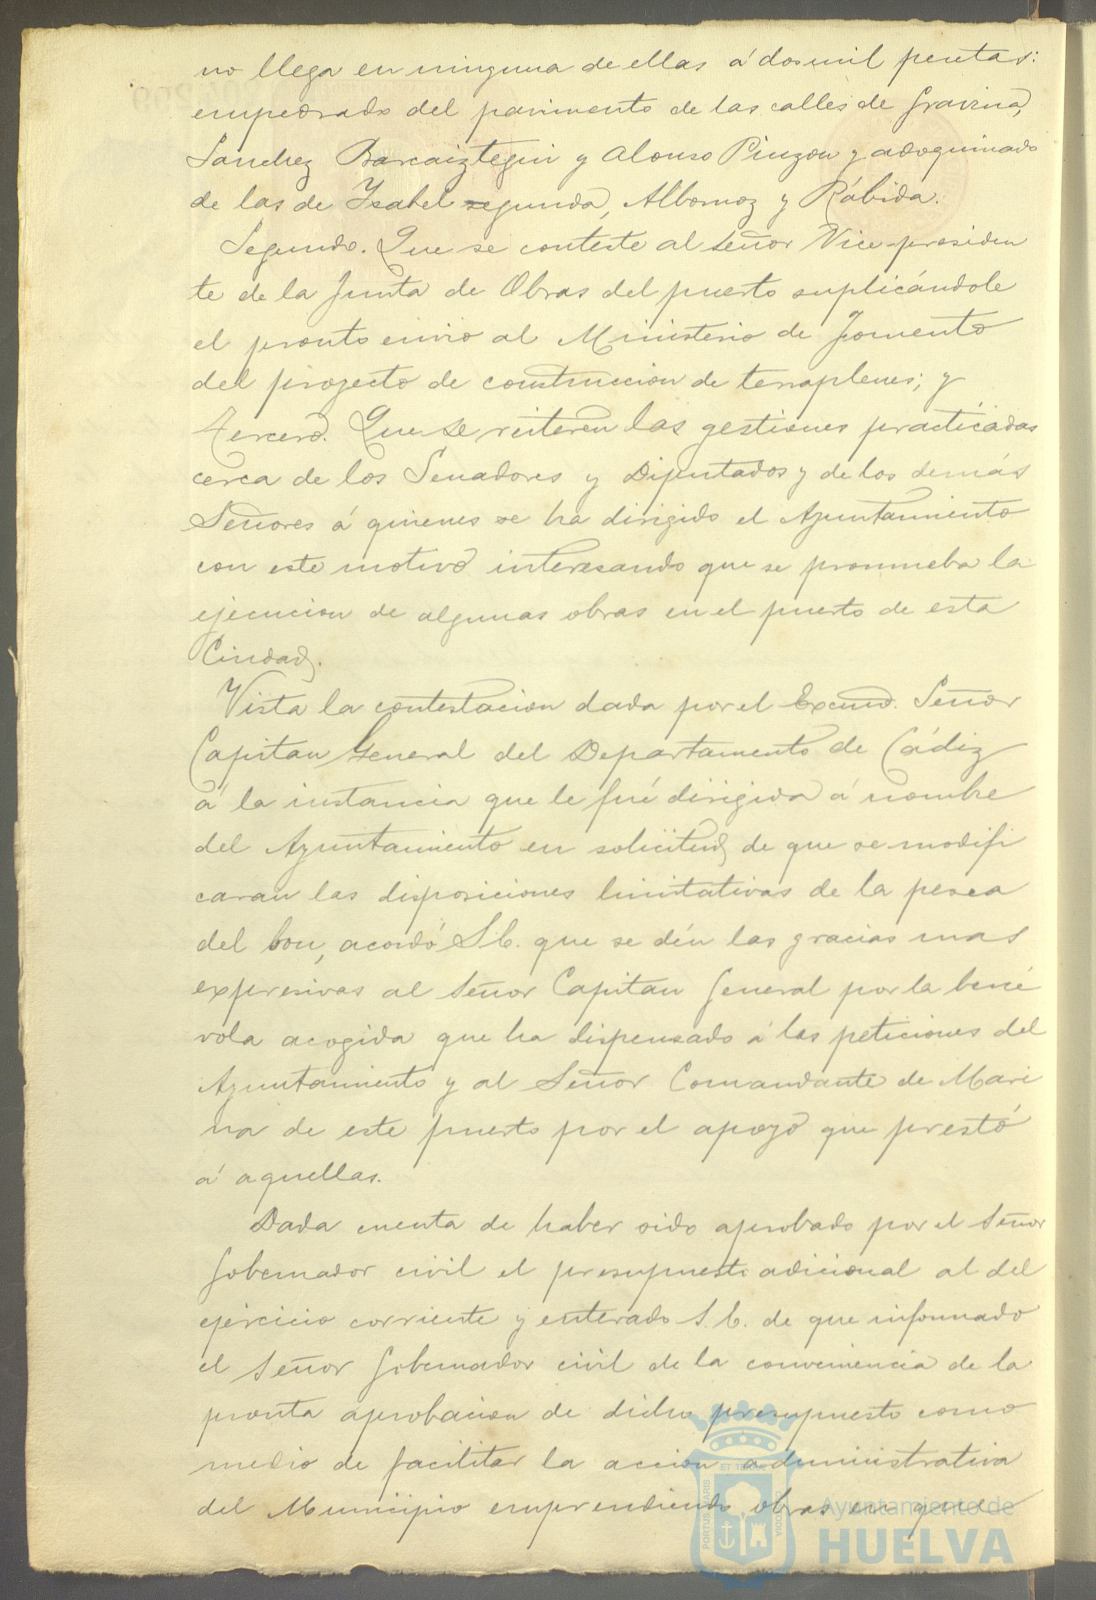 no llega en ninguna de ellas á dos mil pesetas:
empedrado del pavimento de las calles de Gravina,
Sanchez Barcaiztegui y Alonso Pinzon y adoquinado
de las de Isabel segunda, Albornoz y Rábida.
Segundo. Que se conteste al Señor Vice-presiden
te de la Junta de Obras del puerto suplicándole
el pronto envio al Ministerio de Fomento
del proyecto de construccion de terraplenes; y
Tercero. Que se reiteren las gestiones practicadas
cerca de los Senadores y Diputados y de los demás
Señores á quienes se ha dirigido el Ayuntamiento
con este motivo interesando que se promueba la
ejecucion de algunas obras en el puerto de esta
Ciudad.
Vista la contestacion dada por el Excmo. Señor
Capitan General del Departamento de Cádiz
á la instancia que le fué dirigida á nombre
del Ayuntamiento en solicitud de que se modifi
caran las disposiciones limitativas de la pesca
del bou, acordó S.C. que se dén las gracias mas
expresivas al Señor Capitan General por la bené
vola acogida que ha dispensado á las peticiones del
Ayuntamiento y al Señor Comandante de Mari
na de este puerto por el apoyo que prestó
á aquellas.
Dada cuenta de haber sido aprobado por el Señor
Gobernador civil el presupuesto adicional al del
ejercicio corriente y enterado S.C. de que informado
el Señor Gobernador civil de la conveniencia de la
pronta aprobacion de dicho presupuesto como
medio de facilitar la accion administrativa
del Municipio emprendiendo obras en que
Ayuntamiento de
HUELVA